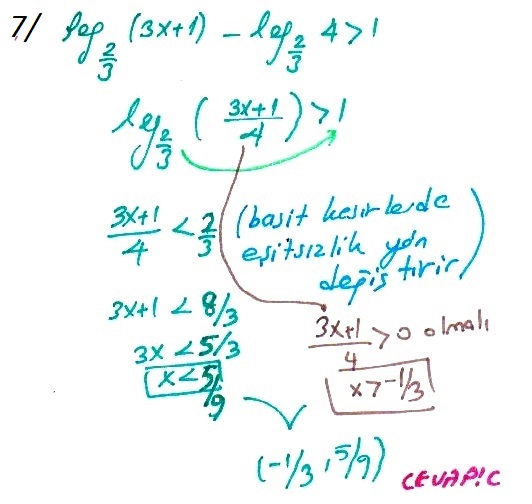 7/ log_{2/3} (3x+1) - log_{2/3} 4 > 1
log_{2/3} ( (3x+1)/4 ) > 1
(3x+1)/4 < 2/3 (basit kesirlerde
eşitsizlik yön
değiştirir)
3x+1 < 8/3
(3x+1)/4 > 0 olmalı
3x < 5/3
x < 5/9
x > -1/3
(-1/3, 5/9)
CEVAP: C